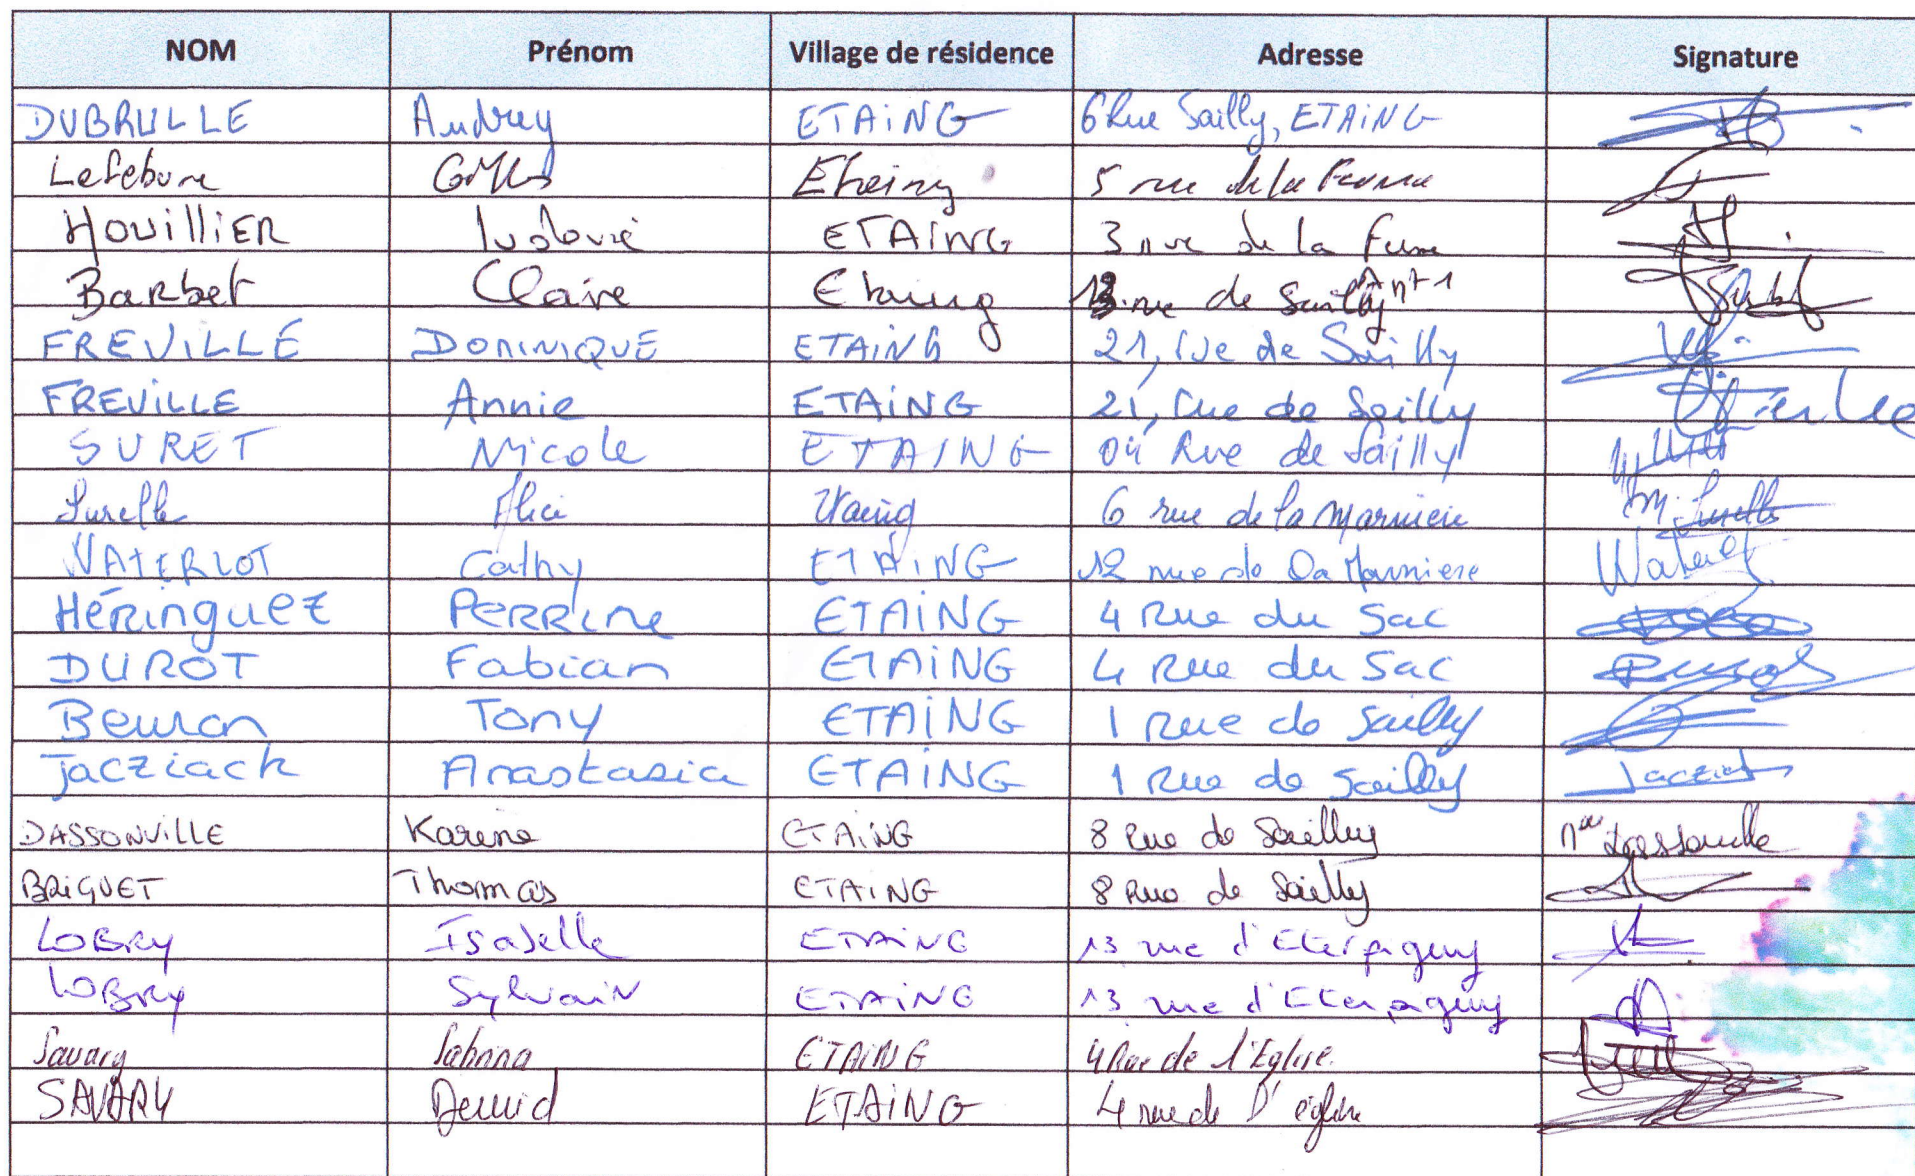 NOM Prénom Village de résidence Adresse Signature
DUBRULLE Audrey ETAiNG 6 Rue Sailly, ETAiNG
Lefebvre Gilles Etaing 5 rue de la Ferme
HOUilliER ludovic ETAiNG 3 rue de la ferme
Barbet Claire Etaing rue de Sailly
FREVILLE DOMINIQUE ETAiNG 21, rue de Sailly
FREVILLE Annie ETAiNG 21, rue de Sailly
SURET Nicole ETAING 04 Rue de Sailly
Surelle Etaing 6 rue de la Marniere M. Surelle
WATERLOT Cathy ETAiNG 12 rue de la Marniere
Héringuez PERRine ETAiNG 4 Rue du Sac
DUROT Fabian ETAiNG 4 Rue du Sac Durot
Beuron Tony ETAiNG 1 Rue de Sailly
Jacziack Anastasia ETAiNG 1 Rue de Sailly Jacziack
DASSONViLLE Karine ETAiNG 8 Rue de Sailly Dassonville
BRiQUET Thomas ETAiNG 8 Rue de Sailly
LOBRY Isabelle ETAiNG 13 rue d'Eterpigny
LOBRY Sylvain ETAiNG 13 rue d'Eterpigny
Savary Sabrina ETAiNG 4 Rue de l'Eglise
SAVARY David ETAiNG 4 rue de l'église